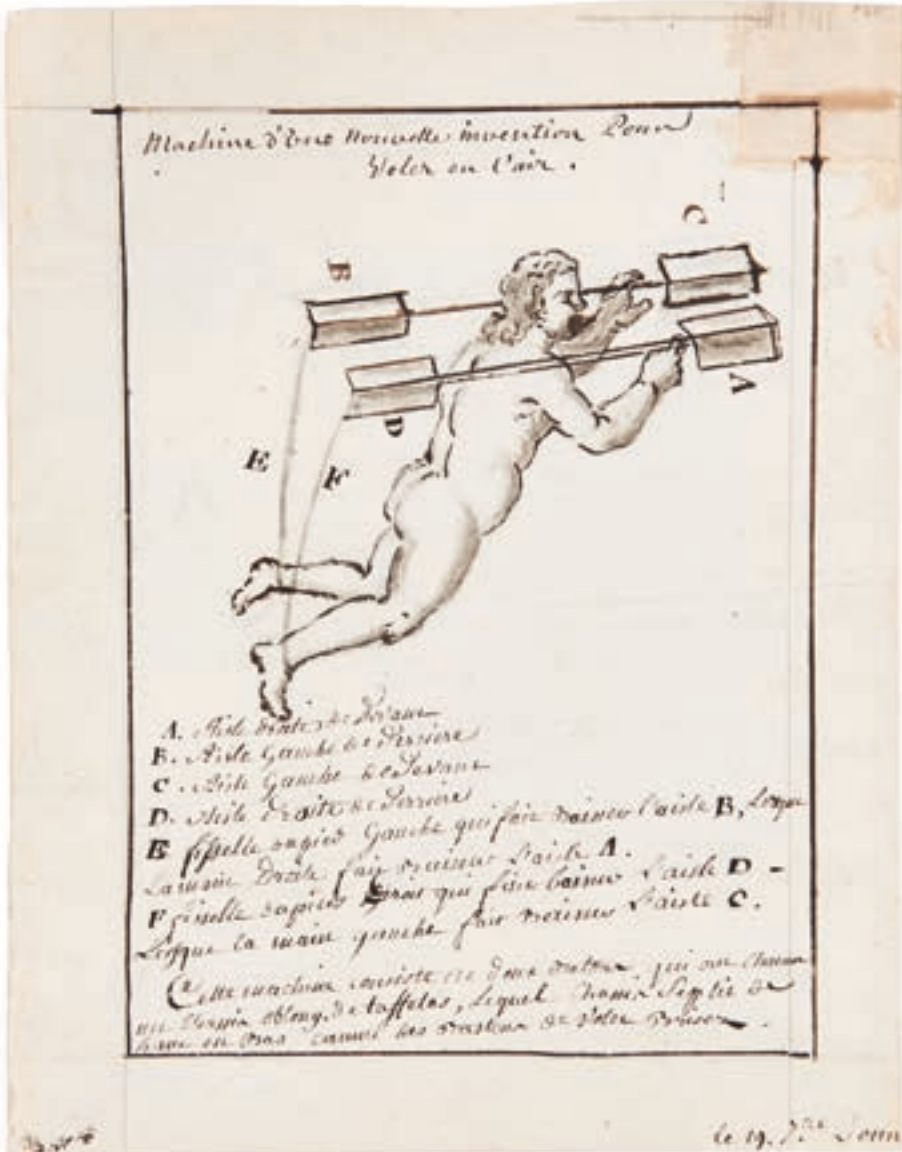 Machine d'une Nouvelle invention Pour
Voler en l'air.
B
C
A
D
E
F
A. Aisle droite de Devant
B. Aisle Gauche de Derriere
C. Aisle Gauche de Devant
D. Aisle Droite de Derriere
E fisselle du pied Gauche qui fait l'aisle B, Lorsque
La main Droite fait l'aisle A.
F fisselle du pied qui fait l'aisle D -
Lorsque la main gauche fait l'aisle C.
Cette machine consiste en deux qui ont chacun
un oblong de taffetas, Lequel chassis se plie de
haut en bas comme des de
le 19. 7bre